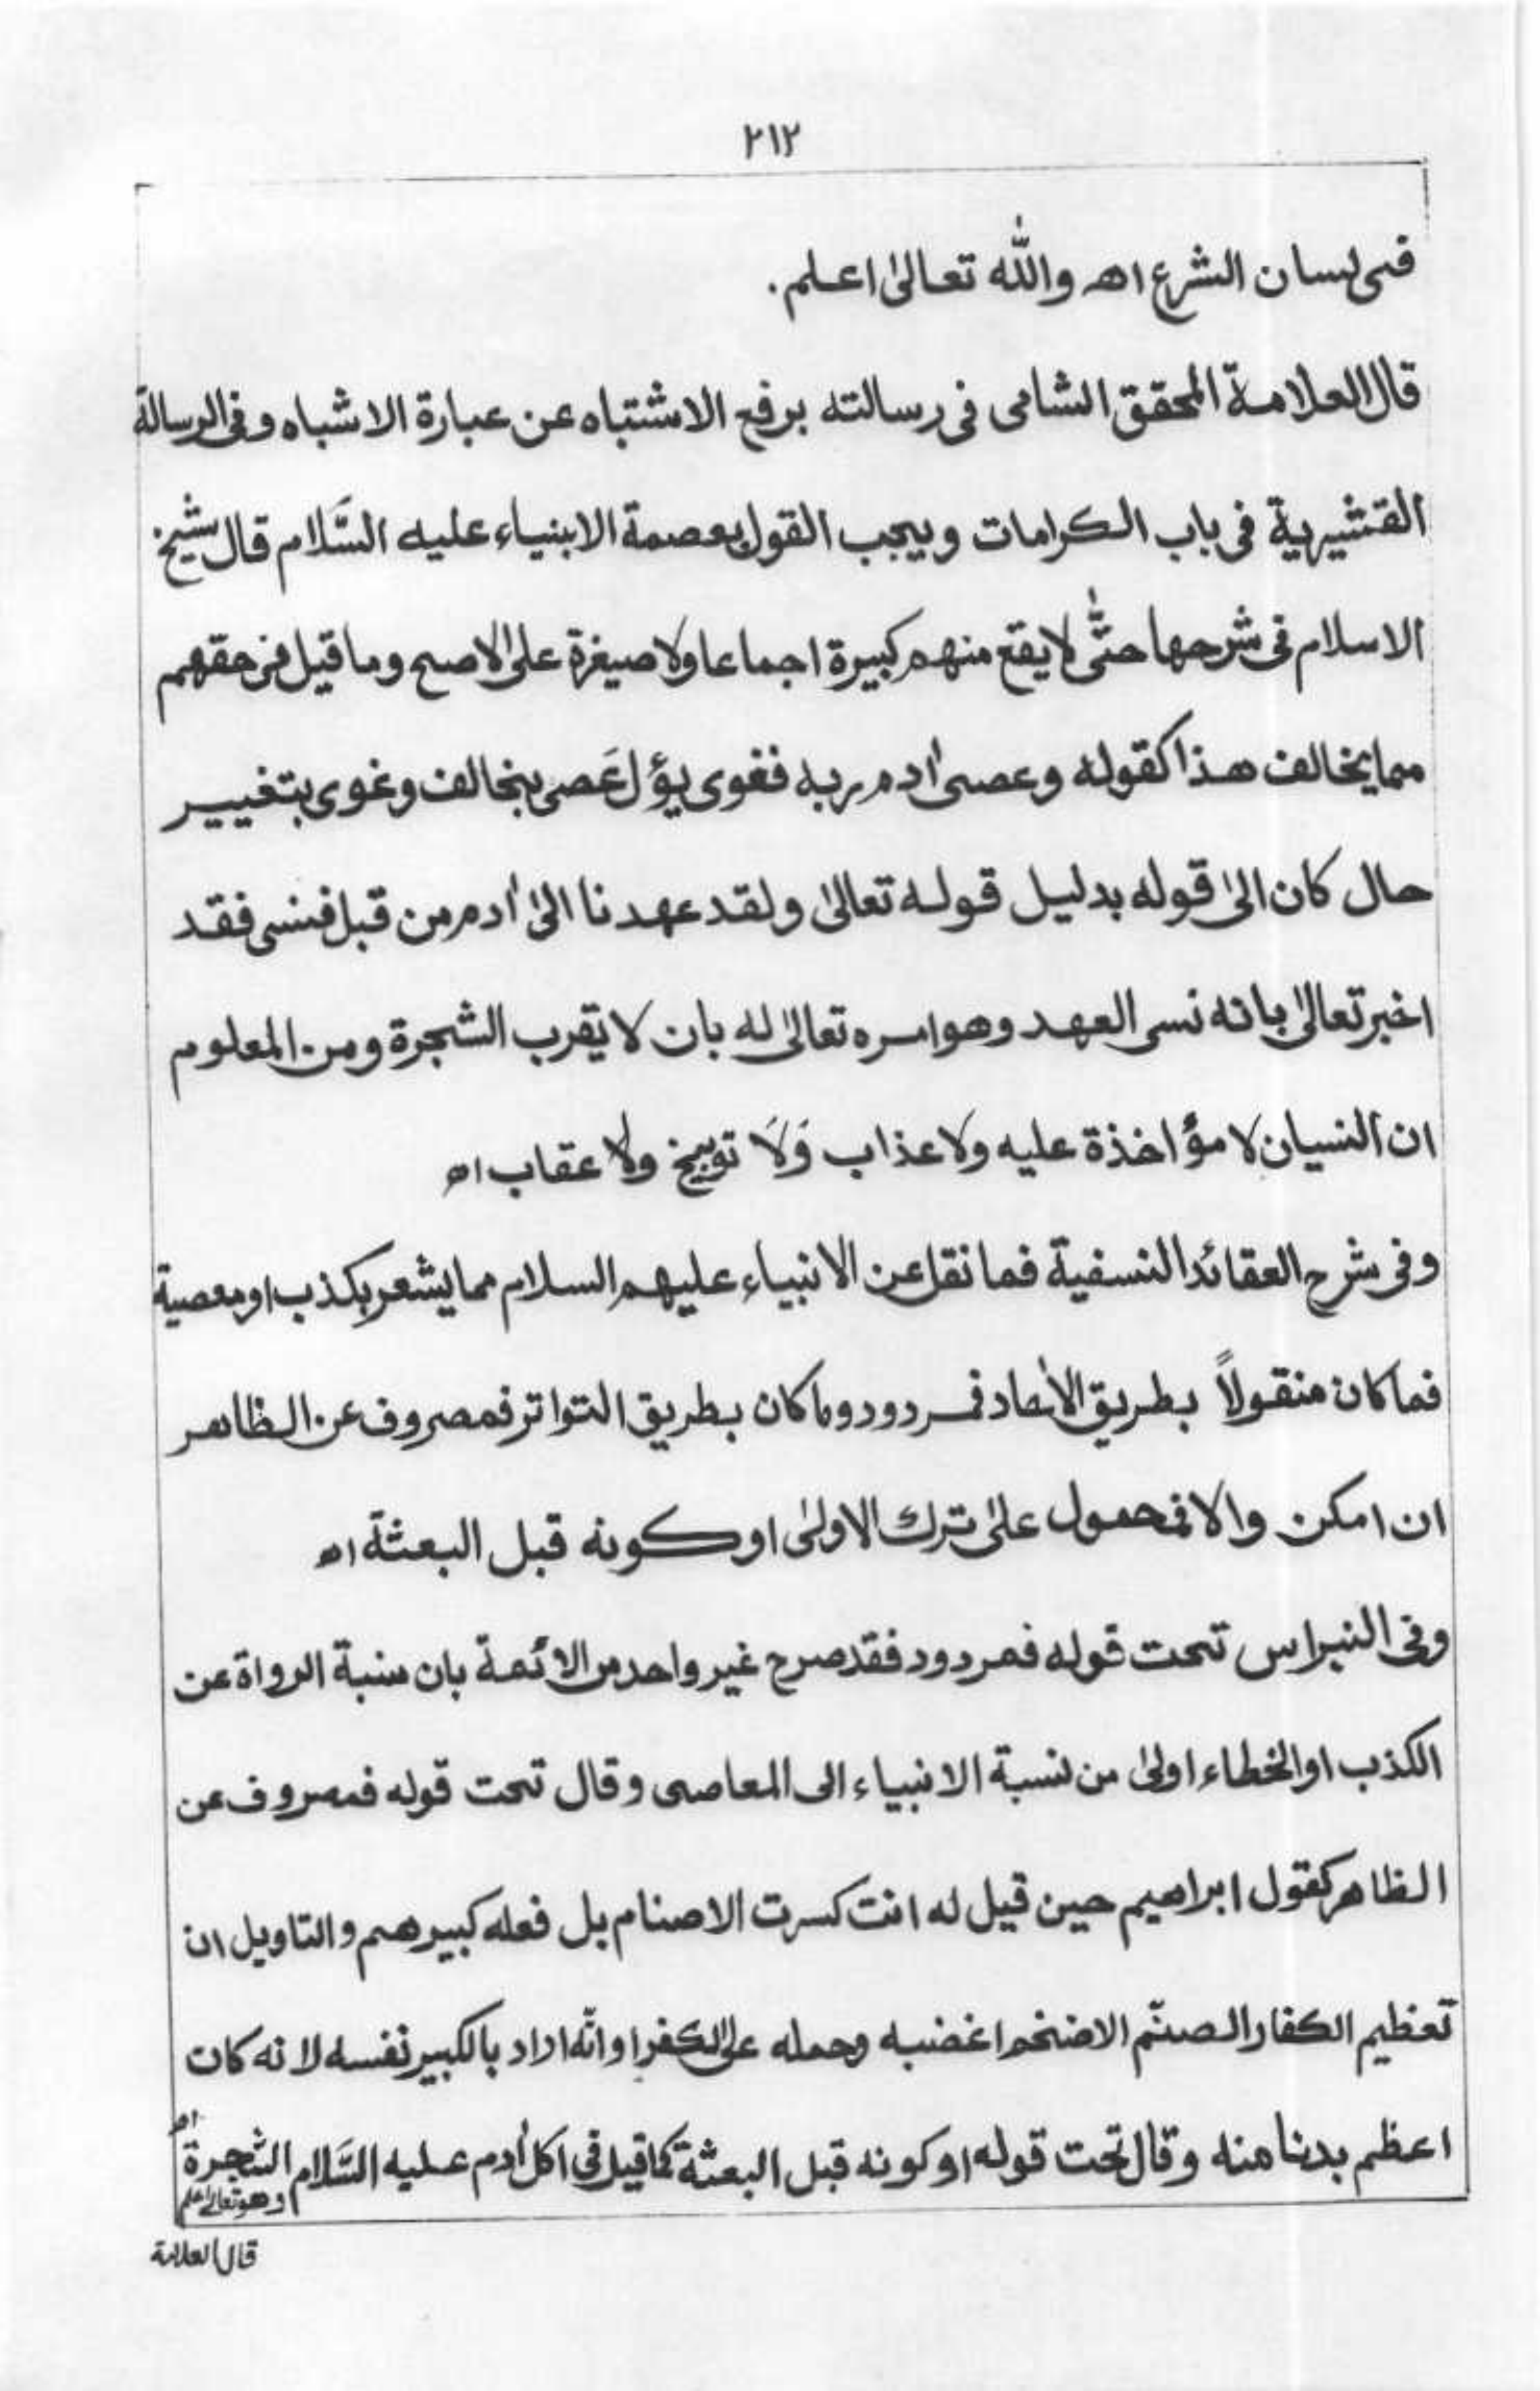 ٢١٢
فى لسان الشرع اھ واللّٰه تعالىٰ اعلم.
قال العلامة المحقق الشامى فى رسالته برفع الاشتباه عن عبارة الاشباه وفى الرسالة
القشيرية فى باب الكرامات ويجب القول بعصمة الانبياء عليه السَّلام قال شيخ
الاسلام فى شرحها حتّٰى لا يقع منهم كبيرة اجماعا ولا صيغرة على الاصح وما قيل فى حقهم
مما يخالف هذا كقوله وعصىٰ اٰدم ربه فغوى يؤل عَصى بنخالف وغوى بتغيير
حال كان الىٰ قوله بدليل قوله تعالىٰ ولقد عهدنا الىٰ اٰدم من قبل فنسى فقد
اخبر تعالىٰ بانه نسى العهد وهو امره تعالىٰ له بان لا يقرب الشجرة ومن المعلوم
ان النسيان لا مؤاخذة عليه ولا عذاب وَلَا توبيخ ولا عقاب اھ
وفى شرح العقائد النسفية فما نقل عن الانبياء عليهم السلام مما يشعر بكذب او معصية
فما كان منقولاً بطريق الاٰحاد فمردود وما كان بطريق التواتر فمصروف عن الظاهر
ان امكن والا فمحمول علىٰ ترك الاولىٰ او كونه قبل البعثة اھ
وفى النبراس تحت قوله فمردود فقد صرح غير واحد من الائمة بان سنبة الرواة عن
الكذب او الخطاء اولىٰ من نسبة الانبياء الى المعاصى وقال تحت قوله فمصروف عن
الظاهر كقول ابراهيم حين قيل له انت كسرت الاصنام بل فعله كبيرهم والتاويل ان
تعظيم الكفار الصنّم الاضخم اغضبه وحمله على الكفر او انّه اراد بالكبير نفسه لانه كان
اعظم بدنا منه وقال تحت قوله او كونه قبل البعثة كما قيل فى اكل اٰدم عليه السَّلام الشجرة اھ وهو تعالىٰ اعلم
قال العلامة